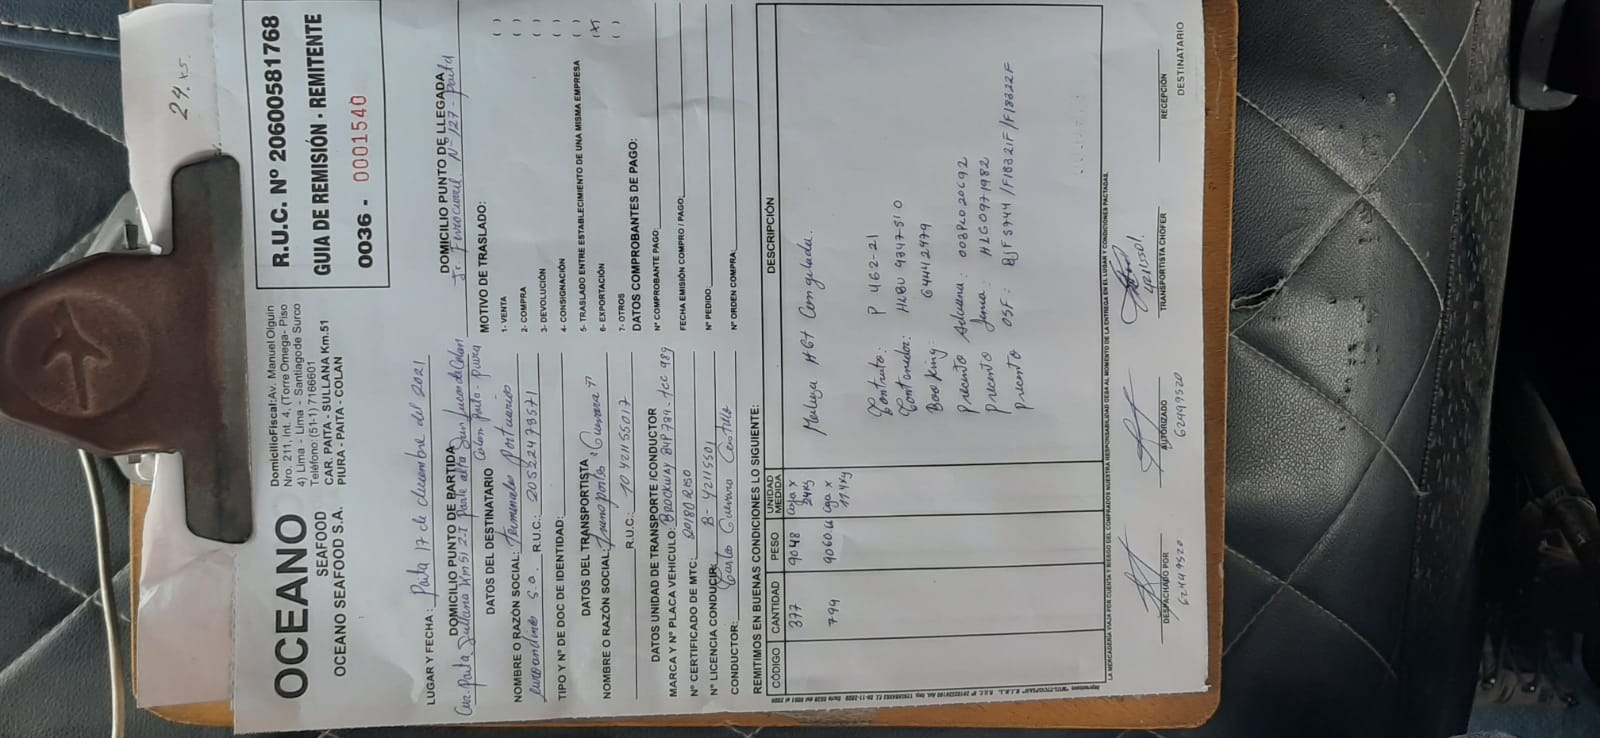 24.XS.
OCEANO
SEAFOOD
OCEANO SEAFOOD S.A.
DomicilioFiscal:Av. Manuel Olguin
Nro. 211, Int. 4, (Torre Omega- Piso
4) Lima - Lima - Santiagode Surco
Teléfono: (51-1) 7166601
CAR. PAITA - SULLANA Km.51
PIURA - PAITA - COLAN
R.U.C. Nº 20600581768
GUIA DE REMISIÓN - REMITENTE
0036 - 0001540
LUGAR Y FECHA: Paita 17 de diciembre del 2021
DOMICILIO PUNTO DE PARTIDA
Car. Paita Sullana Km 51 Z.I Parte alta San Lucas de Colan
Colan Paita - piura
DOMICILIO PUNTO DE LLEGADA
Jr. Ferrocarril Nº 127 - Paita
DATOS DEL DESTINATARIO
NOMBRE O RAZÓN SOCIAL: Terminales Portuarios
Euroandinos S.a. R.U.C.: 20522473571
TIPO Y Nº DE DOC DE IDENTIDAD:
DATOS DEL TRANSPORTISTA
NOMBRE O RAZÓN SOCIAL: Transportes "Guerrero"
R.U.C.: 10421155017
DATOS UNIDAD DE TRANSPORTE /CONDUCTOR
MARCA Y Nº PLACA VEHICULO: Brockway B4P 784 - tcc 989
Nº CERTIFICADO DE MTC:
Nº LICENCIA CONDUCIR: B- 42115501
CONDUCTOR: Carlos Guerrero Castillo
MOTIVO DE TRASLADO:
1- VENTA ( )
2- COMPRA ( )
3- DEVOLUCIÓN ( )
4- CONSIGNACIÓN ( )
5- TRASLADO ENTRE ESTABLECIMIENTO DE UNA MISMA EMPRESA ( )
6- EXPORTACIÓN (X)
7- OTROS ( )
DATOS COMPROBANTES DE PAGO:
Nº COMPROBANTE PAGO:
FECHA EMISIÓN COMPRO / PAGO:
Nº PEDIDO:
Nº ORDEN COMPRA:
REMITIMOS EN BUENAS CONDICIONES LO SIGUIENTE:
CÓDIGO CANTIDAD PESO UNIDAD MEDIDA DESCRIPCIÓN
377 9048 caja x 24kg Merluza HGT Congelada.
794 caja x 11.4kg
Contrato: P 462-21
Contenedor: HLBU 9347510
Booking: 64442979
Precinto Aduana: 003PE020692
Precinto Linea: HLG0971982
Precinto OSF: BJF5744/F18321F/F18322F
LA MERCADERIA VIAJA POR CUENTA Y RIESGO DEL COMPRADOS NUESTRA RESPONSABILIDAD CESA AL MOMENTO DE LA ENTREGA EN EL LUGAR Y CONDICIONES PACTADAS.
DESPACHADO POR
62449520
AUTORIZADO
62449520
TRANSPORTISTA CHOFER
42115501.
RECEPCIÓN
DESTINATARIO